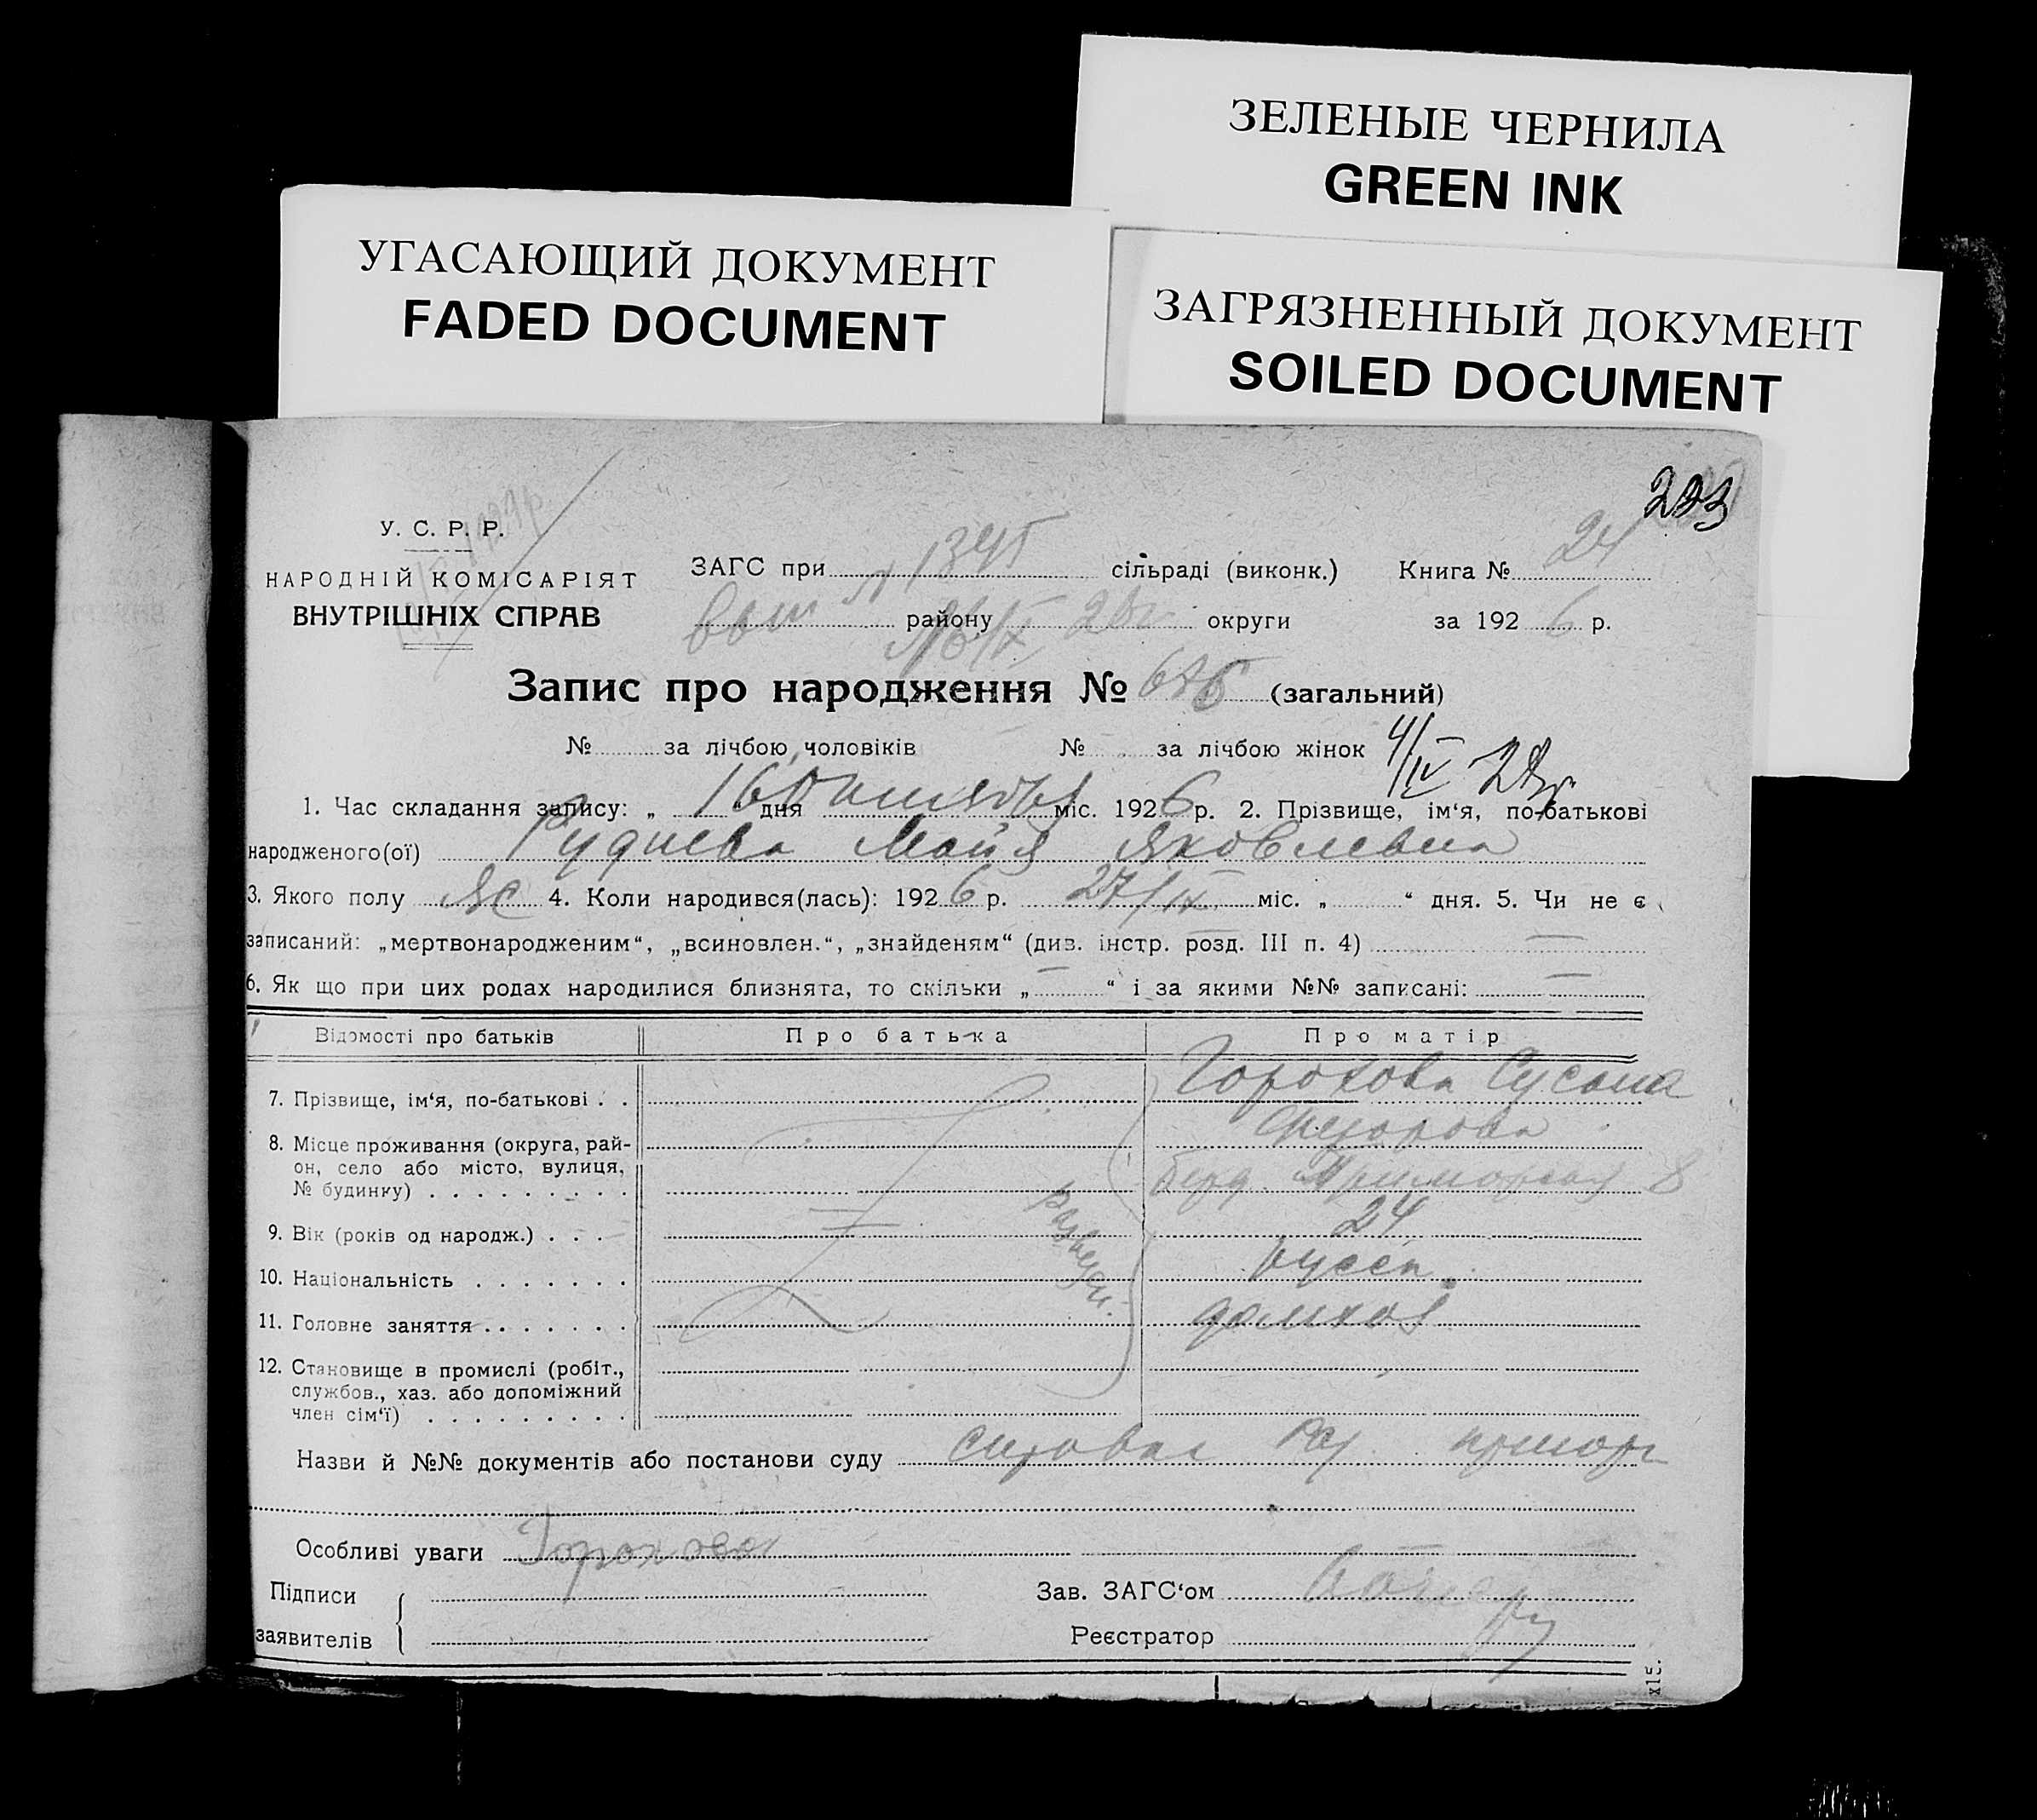 ЗЕЛЕНЫЕ ЧЕРНИЛА
GREEN INK
УГАСАЮЩИЙ ДОКУМЕНТ
FADED DOCUMENT
ЗАГРЯЗНЕННЫЙ ДОКУМЕНТ
SOILED DOCUMENT
У. С. Р. Р.
НАРОДНІЙ КОМІСАРІЯТ
ВНУТРІШНІХ СПРАВ
ЗАГС при № 1395 сільраді (виконк.) Книга № 24
району округи за 1926 р.
Запис про народження № (загальний)
№ за лічбою чоловіків № за лічбою жінок 4/IV
1. Час складання запису: „ 16 дня октября міс. 1926 р. 2. Прізвище, ім‘я, по-батькові
народженого(ої) Руднева Майя Яковлевна
3. Якого полу ж 4. Коли народився(лась): 1926 р. 27/IX міс. „ “ дня. 5. Чи не є
записаний: „мертвонародженим“, „всиновлен.“, „знайденям“ (див. інстр. розд. III п. 4) —
6. Як що при цих родах народилися близнята, то скільки „ — “ і за якими №№ записані: —
Відомості про батьків Про батька Про матір
7. Прізвище, ім‘я, по-батькові . . Горохова Сусана
Федорова
8. Місце проживання (округа, рай-
он, село або місто, вулиця,
№ будинку) . . . . . . . . . Берд. Приморская 8
9. Вік (років од народж.) . . . 24
10. Національність . . . . . . . русск.
11. Головне заняття . . . . . . . домхоз
розведен.
12. Становище в промислі (робіт.,
службов., хаз. або допоміжний
член сім‘ї) . . . . . . . . .
Назви й №№ документів або постанови суду
Особливі уваги Горохова
Підписи
заявителів
Зав. ЗАГС‘ом
Реєстратор
х15.